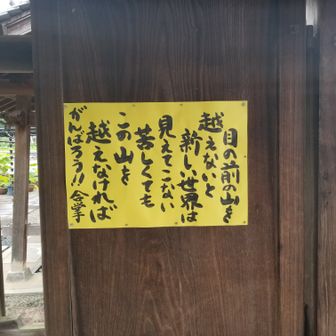 目の前の山を
越えないと
新しい世界は
見えてこない
苦しくても
この山を
越えなければ
がんばろう!! 合掌